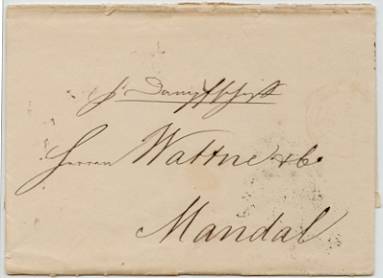 pr Dampfschiff
Herren Wattne & Co
Mandal